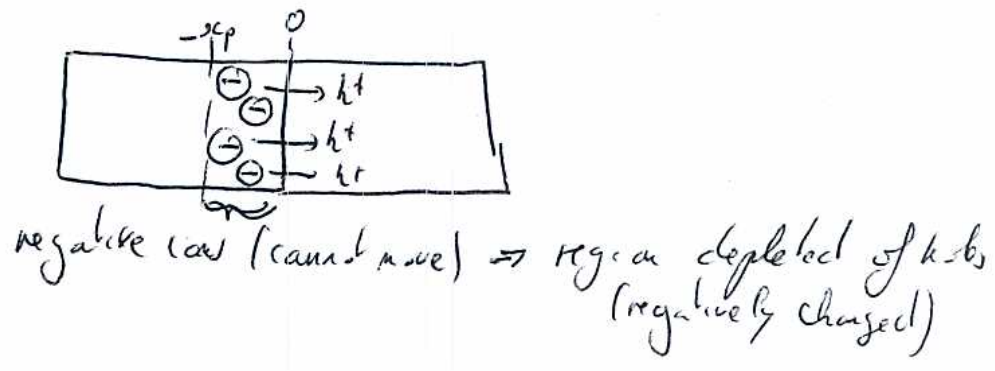 -xp 0
h+
h+
h+
negative ions (cannot move) ⇒ region depleted of holes
(negatively charged)